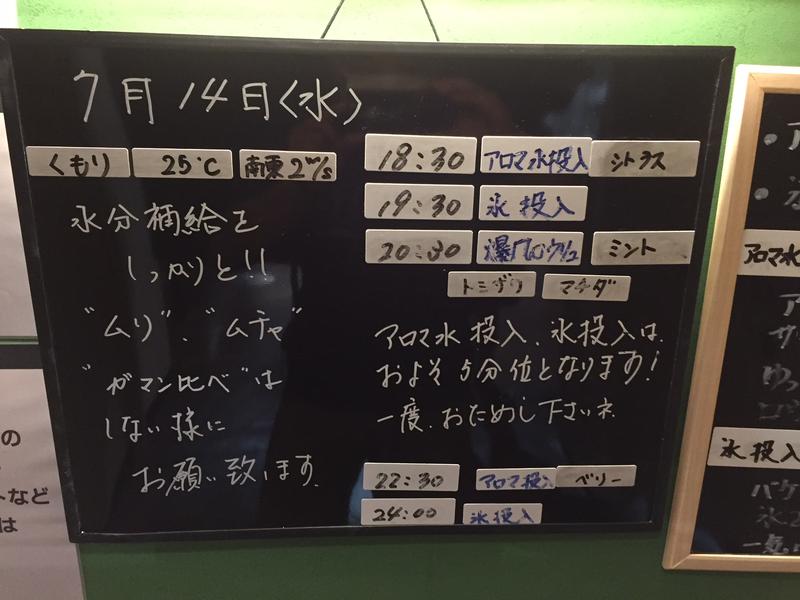 7月14日〈水〉
くもり 25℃ 南東2m/s
水分補給を
しっかりと!!
"ムリ"、"ムチャ"
"ガマン比べ"は
しない様に
お願い致します。
18:30 アロマ水投入 シトラス
19:30 氷投入
20:30 爆風ロウリュ ミント
トミザワ マチダ
アロマ水投入、氷投入は、
およそ5分位となります!
一度、おためし下さいネ
22:30 アロマ投入 ベリー
24:00 氷投入
の
トなど
は
アロマ水
氷投入